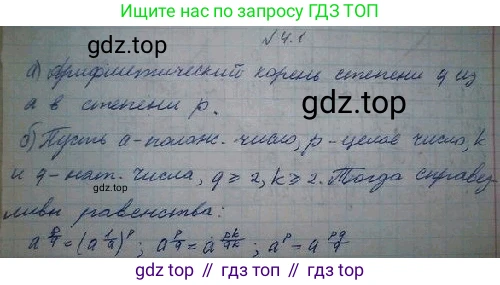 Ищите ответы по запросу ГДЗ ТОП
gdz.top
№ 4.1
а) Арифметический корень степени q из
а в степени p.
gdz.top
gdz.top
б) Пусть a - полож. число, p - целое число, k
и q - нат. числа, q ≥ 2, k ≥ 2. Тогда справед
ливы равенства:
gdz.top
a^{p/q} = (a^{1/q})^p ; a^{p/q} = a^{pk/qk} ; a^p = a^{pq/q}
gdz.top // гдз.топ // gdz.top // гдз.топ